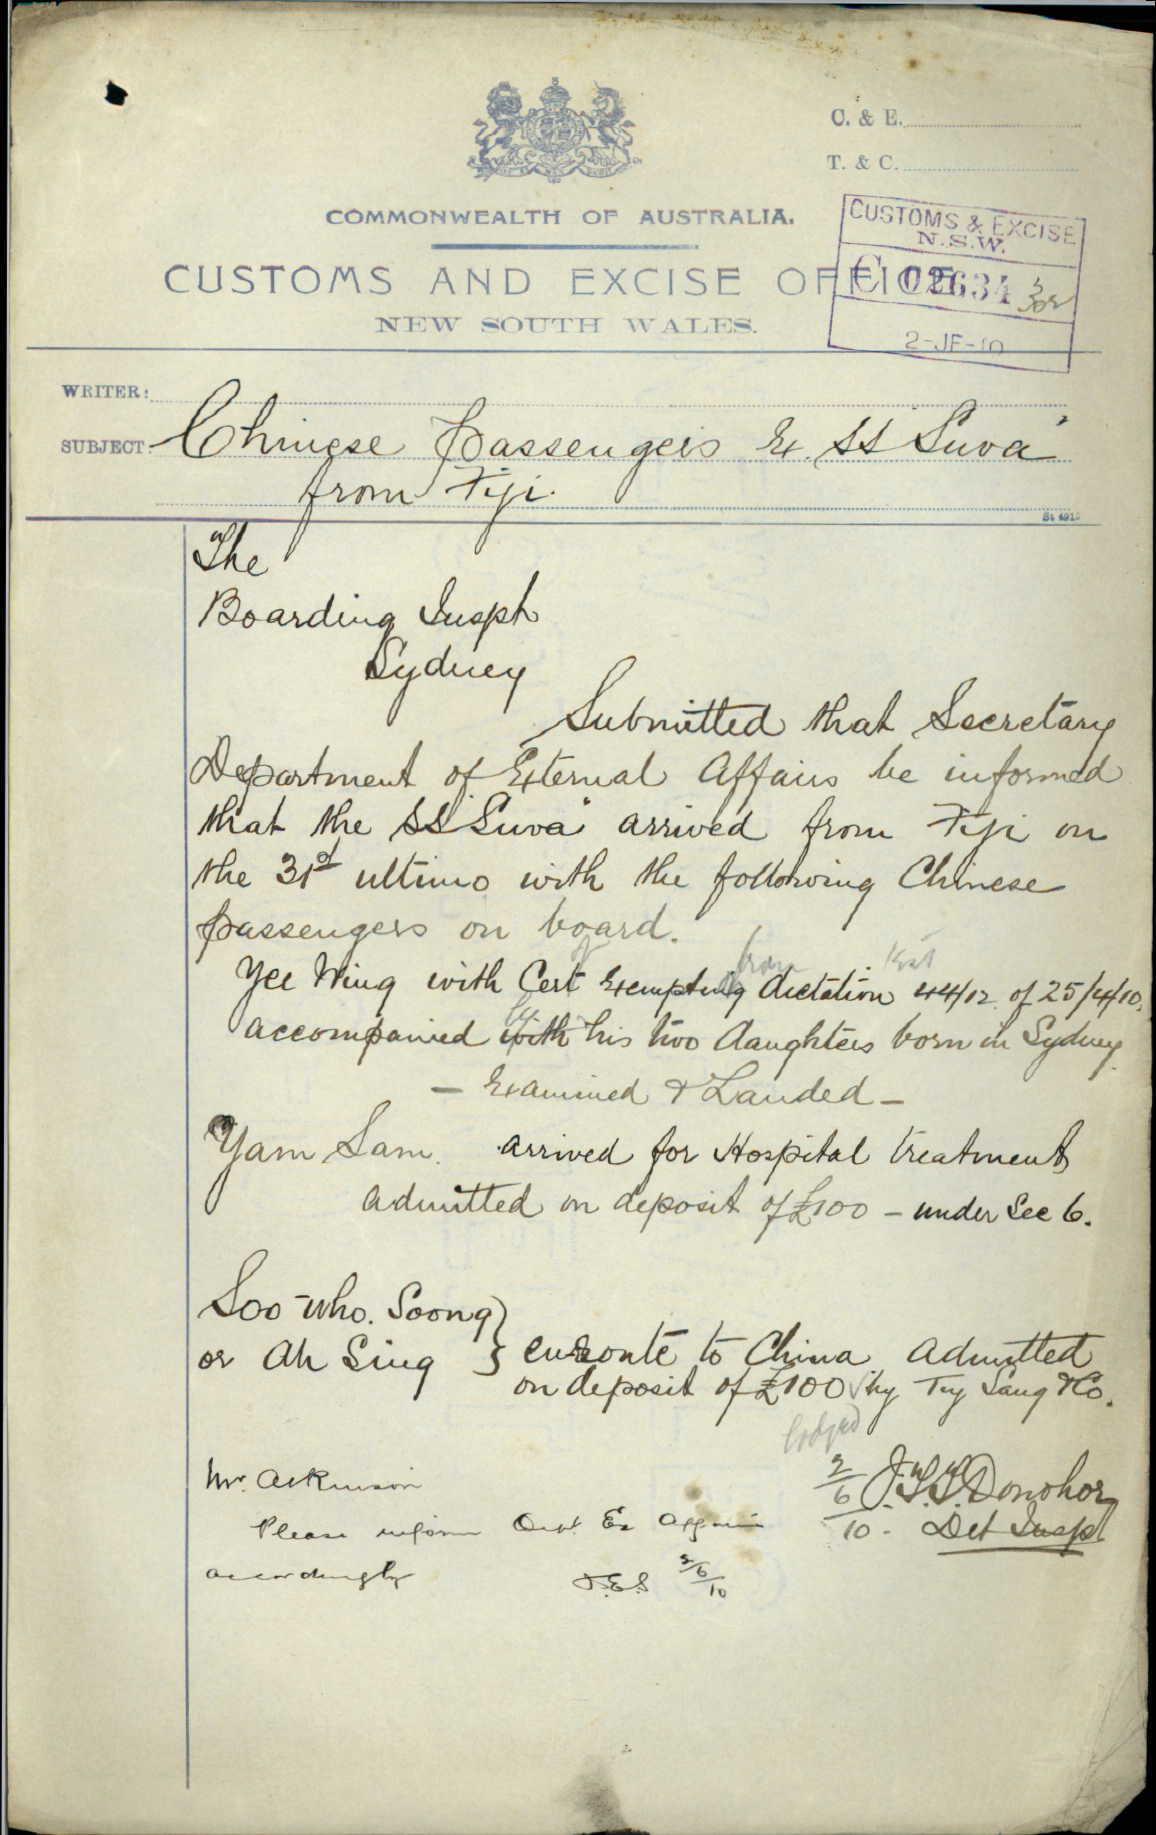 C. & E.
T. & C.
COMMONWEALTH OF AUSTRALIA.
CUSTOMS & EXCISE
N.S.W.
C 02634
2-JE-10
CUSTOMS AND EXCISE OFFICE
NEW SOUTH WALES.
WRITER:
SUBJECT: Chinese Passengers Ex. SS "Suva"
from Fiji.
The
Boarding Inspr
Sydney
Submitted that Secretary
Department of External Affairs be informed
that the SS "Suva" arrived from Fiji on
the 31st ultimo with the following Chinese
passengers on board.
of from Test
Yee Wing with Cert Exempting dictation 44/02 of 25/4/10.
by
accompanied with his two daughters born in Sydney.
- Examined & Landed -
Yam Sam. arrived for Hospital treatment
admitted on deposit of £100 - under Sec 6.
Soo Who. Soong }
or Ah Sing } enroute to China admitted
on deposit of £100 by Tiy Sang & Co.
lodged
Mr. Atkinson
Please inform Dept. Ex Affairs
accordingly
2/6/10
2/6/10. J.T.T. Donohoe
Det Inspr